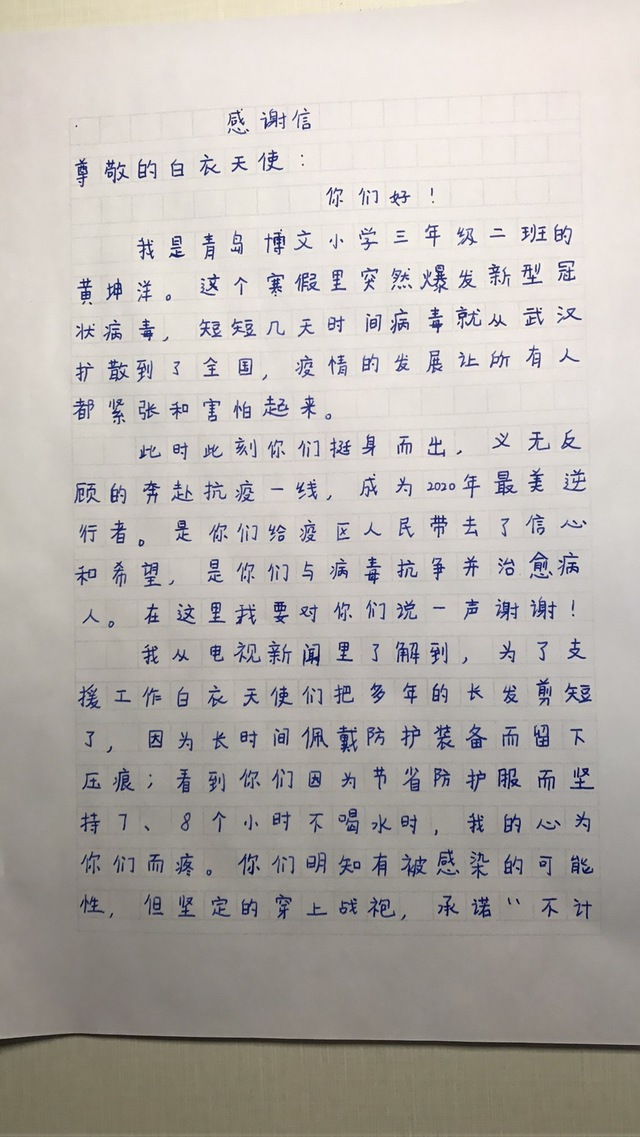 感谢信
尊敬的白衣天使：
你们好！
我是青岛博文小学三年级二班的
黄坤洋。这个寒假里突然爆发新型冠
状病毒，短短几天时间病毒就从武汉
扩散到了全国，疫情的发展让所有人
都紧张和害怕起来。
此时此刻你们挺身而出，义无反
顾的奔赴抗疫一线，成为2020年最美逆
行者。是你们给疫区人民带去了信心
和希望，是你们与病毒抗争并治愈病
人。在这里我要对你们说一声谢谢！
我从电视新闻里了解到，为了支
援工作白衣天使们把多年的长发剪短
了，因为长时间佩戴防护装备而留下
压痕；看到你们因为节省防护服而坚
持7、8个小时不喝水时，我的心为
你们而疼。你们明知有被感染的可能
性，但坚定的穿上战袍，承诺“不计